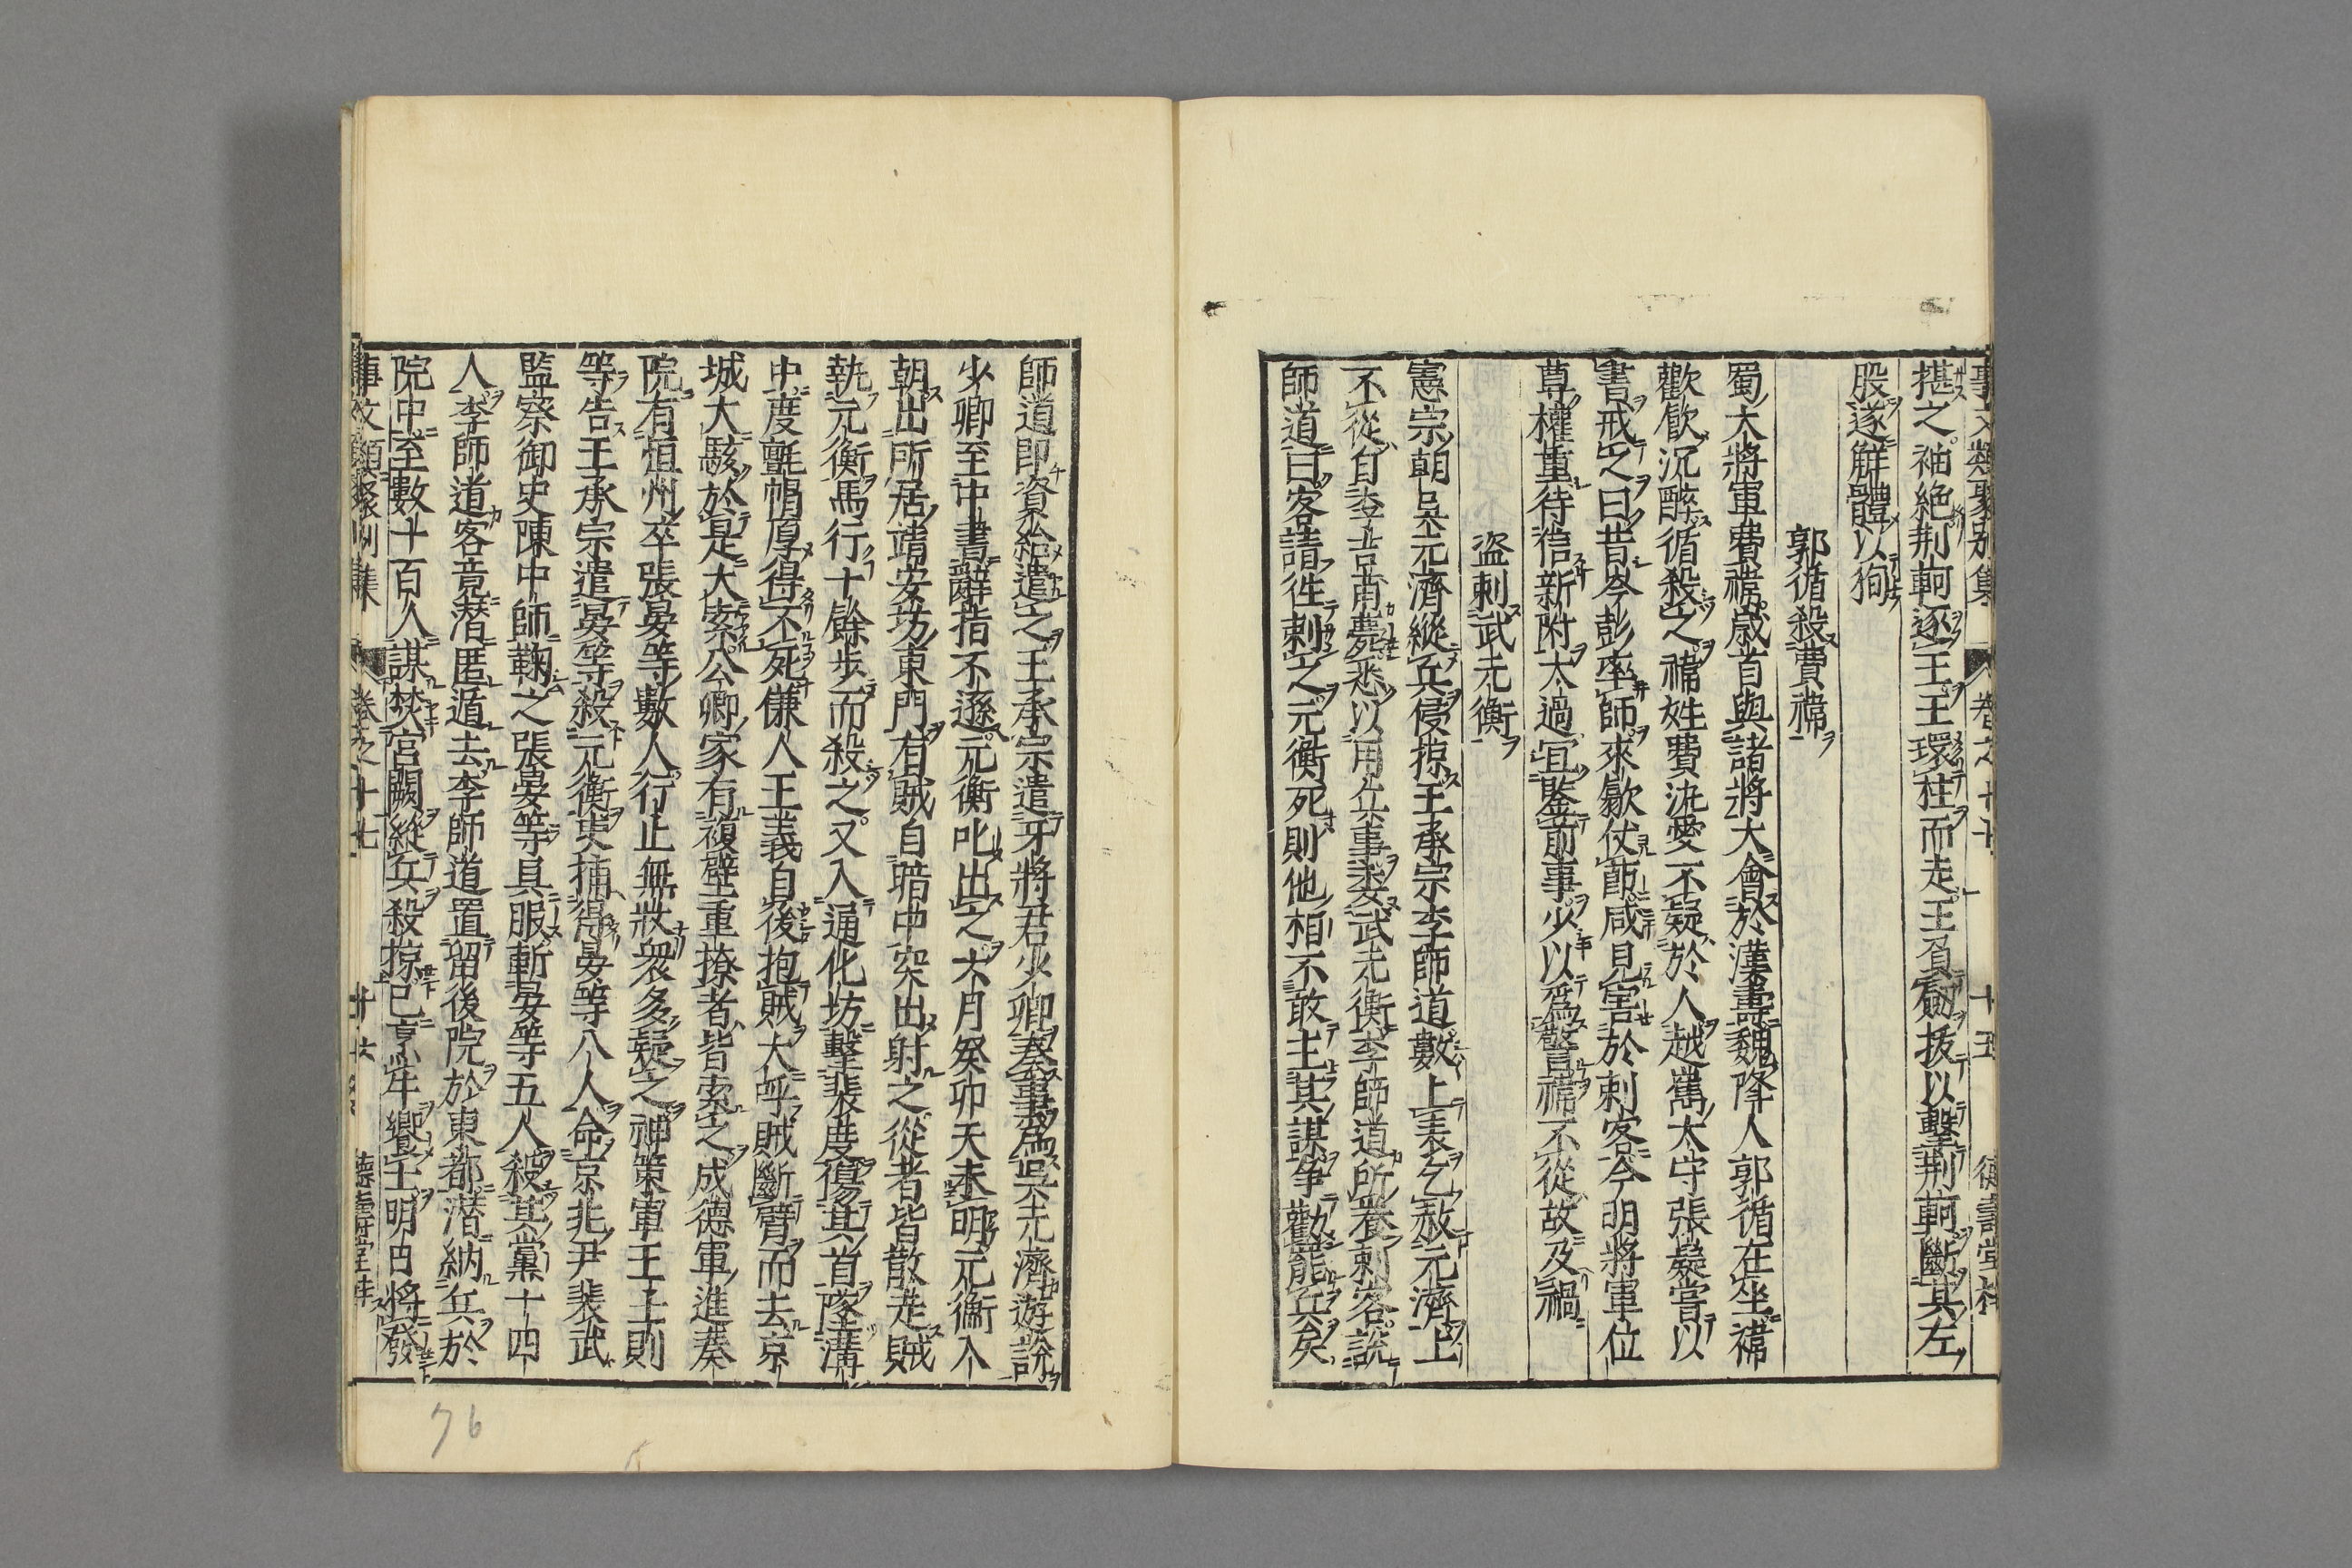 事文類聚別集 卷之二十七 十五 德壽堂梓
揕之袖絶荆軻逐王王環柱而走王負劒拔以擊荆軻斷其左
股遂觧體以狥
郭循殺費禕
蜀大將軍費禕歳首與諸將大會於漢壽魏降人郭循在坐禕
歡飲沉醉循殺之禕姓費汎愛不疑於人越嶲太守張嶷嘗以
書戒之曰昔岑彭率師來歙仗莭咸見害於刺客今明將軍位
尊權重待信新附太過宜鑒前事少以爲警禕不從故及禍
盜刺武元衡
憲宗朝吳元濟縱兵侵掠王承宗李師道數上表乞赦元濟上
不從自李吉甫薨悉以用兵事委武元衡李師道所養刺客說
師道曰客請徃刺之元衡死則他相不敢主其謀爭勸罷兵矣
師道即資給遣之王承宗遣牙將君少卿奏事爲吳元濟遊說
少卿至中書辭指不遜元衡叱出之六月癸卯天未明元衡入
朝出所居靖安坊東門有賊自暗中突出射之從者皆散走賊
執元衡馬行十餘步而殺之又入通化坊擊裴度傷其首墜溝
中度氈帽厚得不死傔人王義自後抱賊大呼賊斷臂而去京
城大駭於是大索公卿家有複壁重橑者皆索之成德軍進奏
院有恒州卒張晏等數人行止無狀衆多疑之神策軍王士則
等告王承宗遣晏等殺元衡吏捕得晏等八人命京兆尹裴武
監察御史陳中師鞠之張晏等具服斬晏等五人殺其黨十四
人李師道客竟潜匿遁去李師道置留後院於東都潜納兵於
院中至數十百人謀焚宮闕縱兵殺掠已烹牛饗士明日將發
事文類聚別集 卷之二十七 十六 德壽堂梓
76